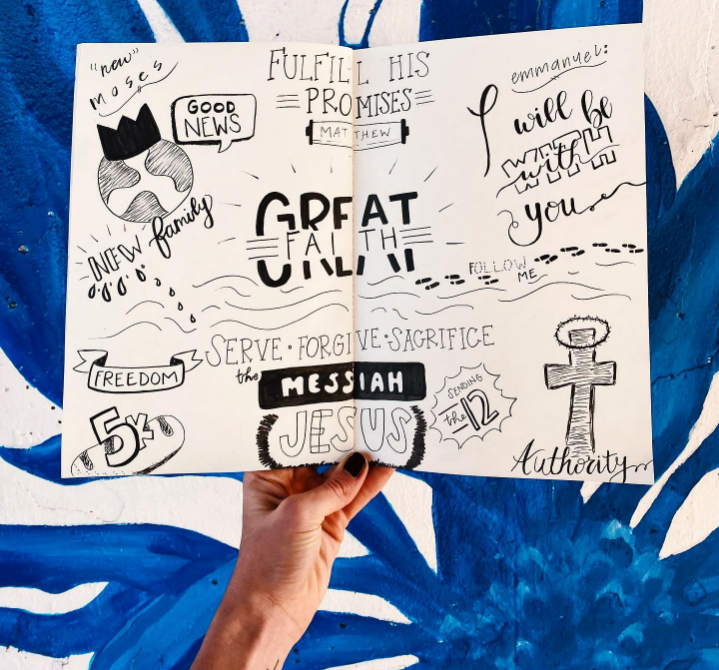 "new"
moses
GOOD
NEWS
NEW family
FREEDOM
FULFILL HIS
PROMISES
MATTHEW
GREAT
FAITH
SERVE · FORGIVE · SACRIFICE
the
MESSIAH
JESUS
emmanuel:
I will be
with
you
FOLLOW
ME
SENDING
the 12
Authority